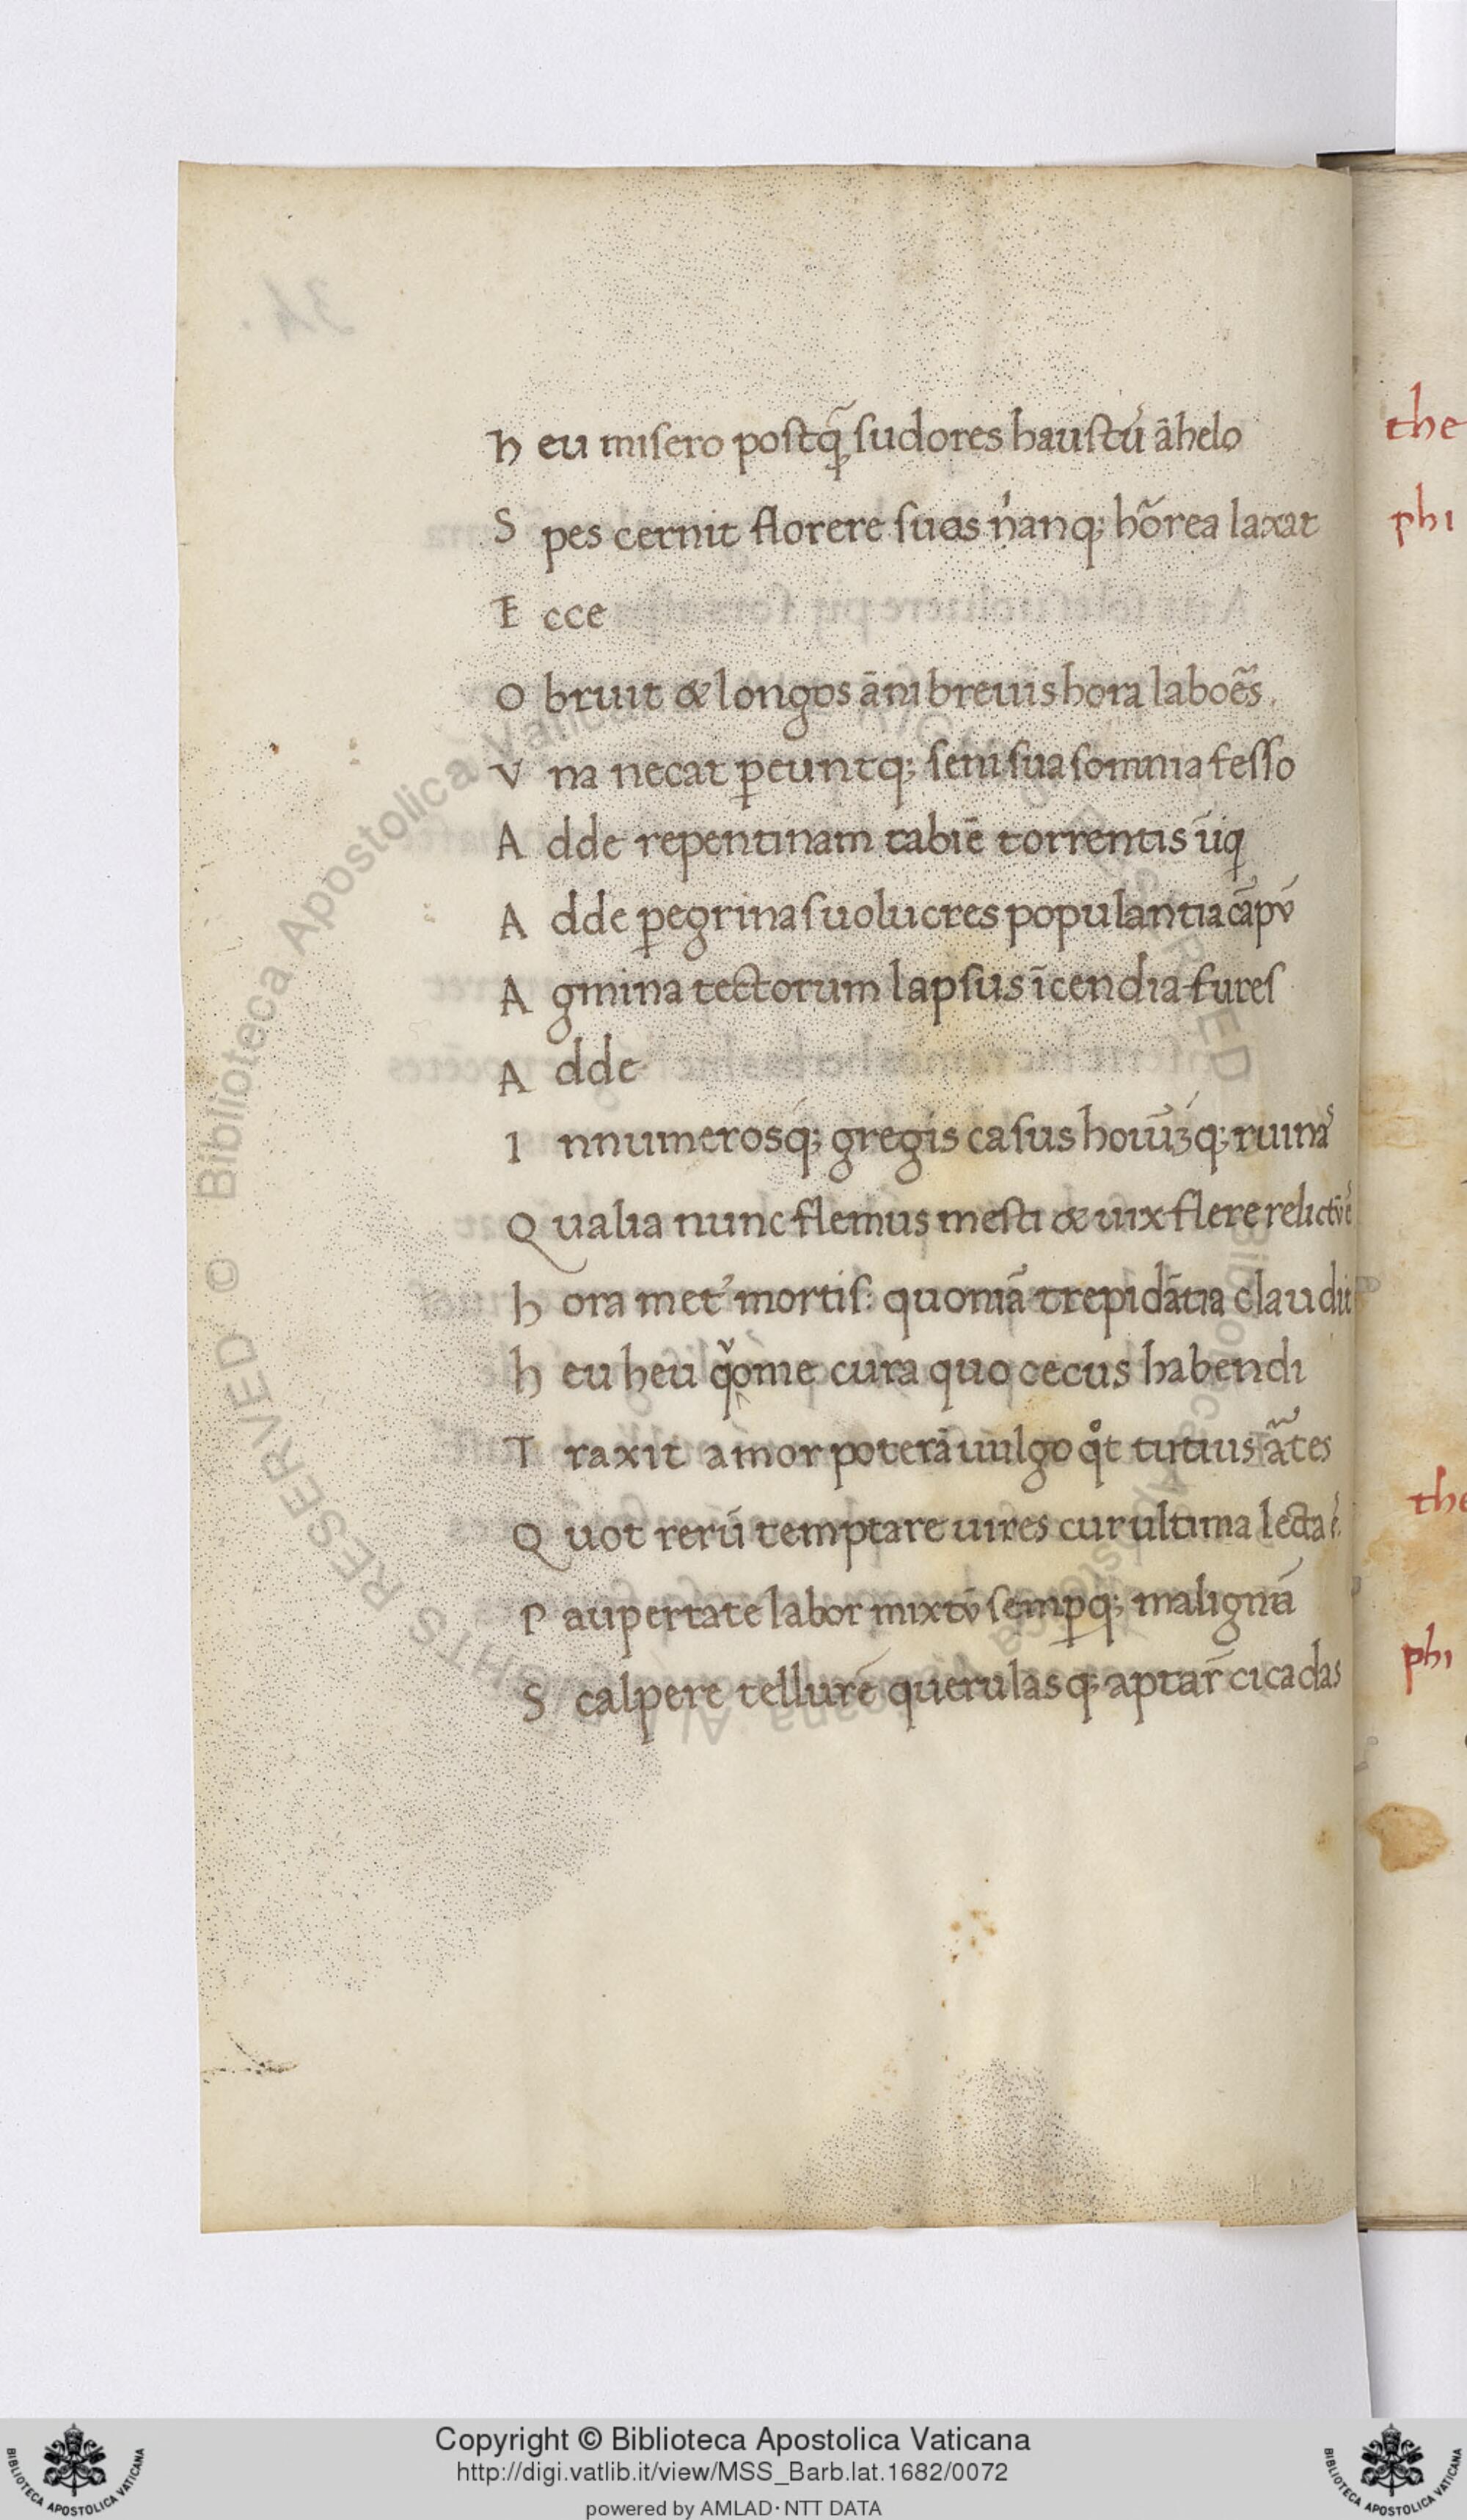 h eu misero postq̃ sudores haustũ ãhelo
S pes cernit florere suas ñ anq; hõrea laxat
E cce
O bruit & longos ãni breuis hora laboẽs
V na necat ꝑeuntq; seni sua somnia fesso
A dde repentinam tabiẽ torrentis ũq
A dde ꝑegrinas uolucres populantia cãpũ
A gmina tectorum lapsus ĩcendia fures
A dde
I nnumerosq; gregis casus hoiũꝫq; ruinas
Q ualia nunc flemus mesti & uix flere relictũ ẽ
h ora met᾽ mortis: quoniã trepidãtia claudit
h eu heu q̃ome cura quo cecus habendi
T raxit amor poterã uulgo q̊t tutius ãtes
Q uot rerũ temptare uires cur ultima lecta ẽ
P aupertate labor mixtũ semꝑq; malignũ
S calpere tellurẽ querulasq; aptar̃ cicadas
the
phi
the
phi
34
Biblioteca Apostolica Vaticana
RIGHTS RESERVED ©
Copyright © Biblioteca Apostolica Vaticana
http://digi.vatlib.it/view/MSS_Barb.lat.1682/0072
powered by AMLAD·NTT DATA
BIBLIOTECA APOSTOLICA VATICANA
BIBLIOTECA APOSTOLICA VATICANA